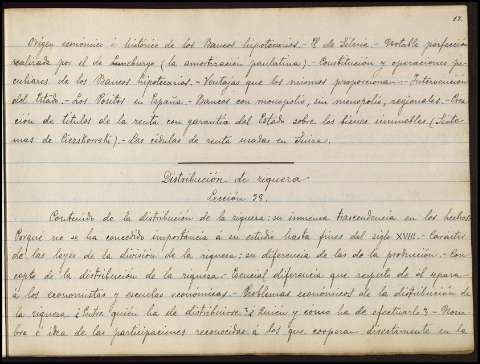 17.
Origen económico é histórico de los Bancos hipotecarios.- El de Silesia.- Notable perfección
realizada por el de Luneburgo (la amortización paulatina).- Constitución y operaciones pe-
culiares de los Bancos hipotecarios.- Ventajas que los mismos proporcionan.- Intervención
del Estado.- Los Pósitos en España.- Bancos con monopolio, sin monopolio, regionales.- Crea-
ción de títulos de la renta con garantía del Estado sobre los bienes inmuebles (Siste-
mas de Cieszkowski).- Las cédulas de renta usadas en Suiza.
Distribución de riqueza.
Lección 28.
Contenido de la distribución de la riqueza: su inmensa trascendencia en los hechos.
Porqué no se ha concedido importancia á su estudio hasta fines del siglo XVIII.- Carácter
de las leyes de la división de la riqueza: su diferencia de las de la producción.- Con-
cepto de la distribución de la riqueza.- Esencial diferencia que respecto de él separa
á los economistas y escuelas económicas.- Problemas económicos de la distribución de
la riqueza ¿Entre quién ha de distribuirse? ¿Quien y como ha de efectuarlo?- Nom-
bra é idea de las participaciones reconocidas á los que cooperan directamente en la